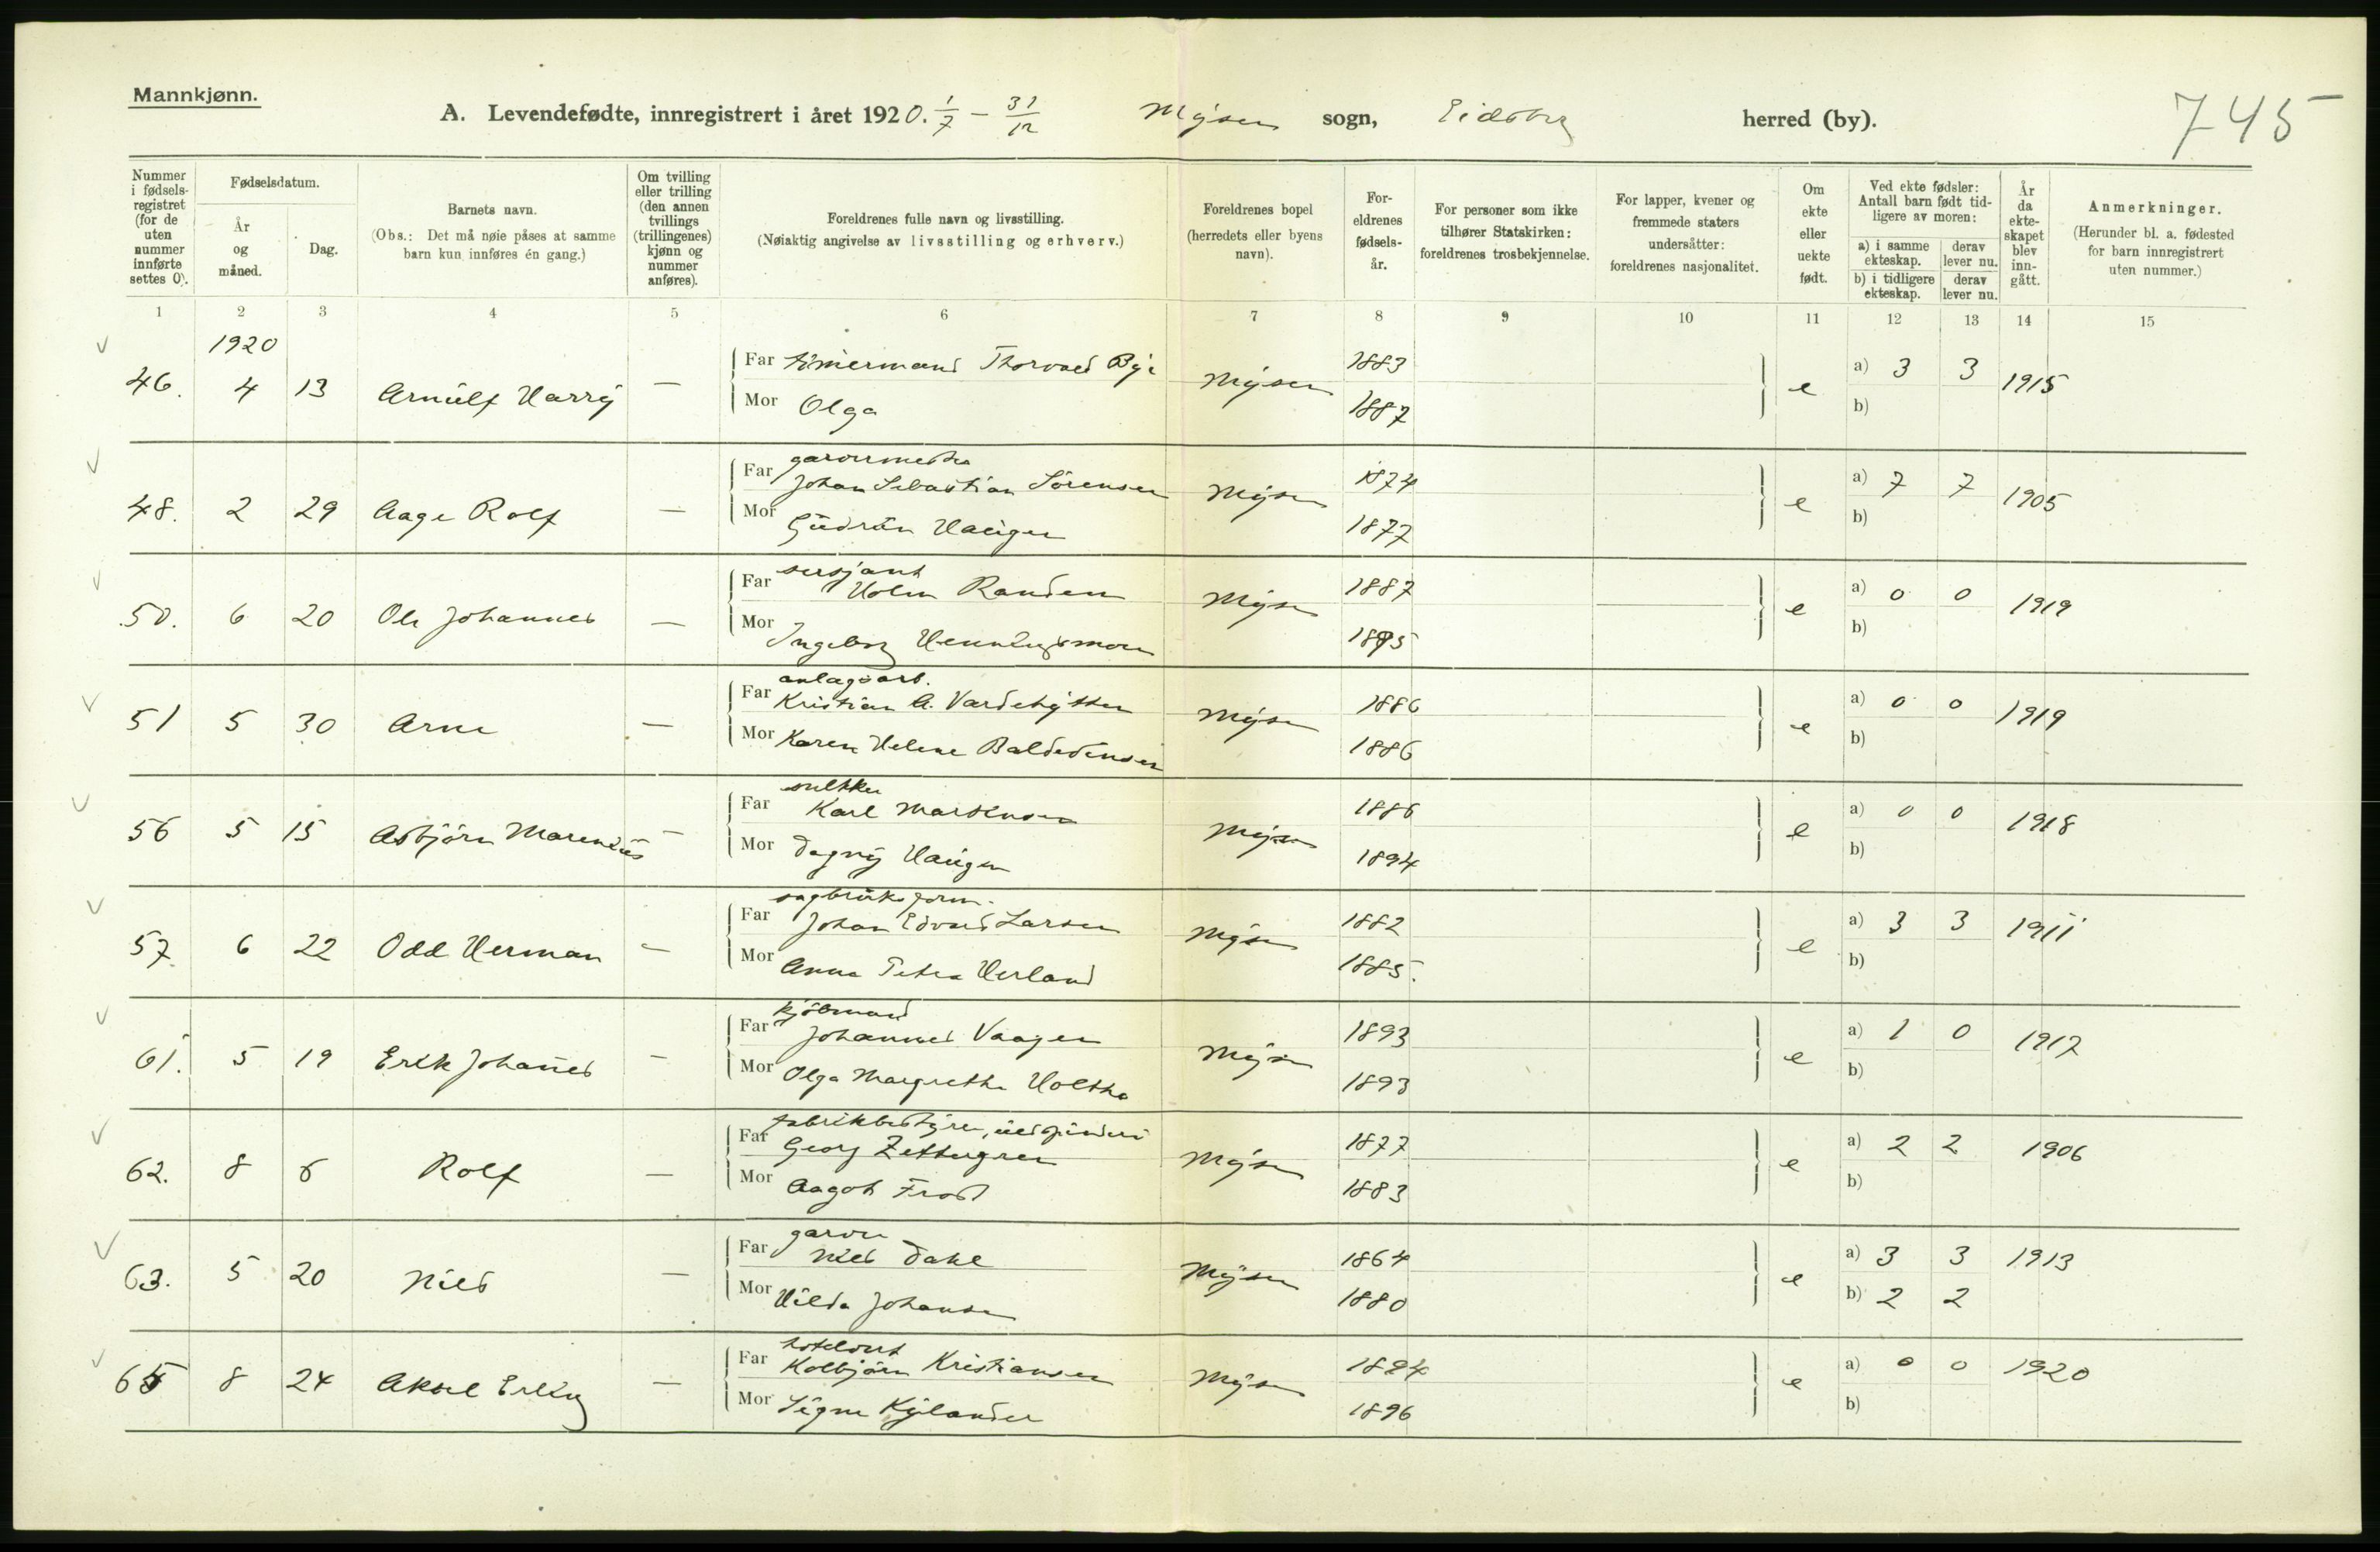 Mannkjønn.
A. Levendefødte, innregistrert i året 1920. 1/7 – 31/12 Mysen sogn, Eidsberg herred (by). 745
Nummer i fødselsregistret (for de uten nummer innførte settes 0).
Fødselsdatum.
År og måned.
Dag.
Barnets navn.
(Obs.: Det må nøie påses at samme barn kun innføres én gang.)
Om tvilling eller trilling (den annen tvillings (trillingenes) kjønn og nummer anføres).
Foreldrenes fulle navn og livsstilling.
(Nøiaktig angivelse av livsstilling og erhverv.)
Foreldrenes bopel (herredets eller byens navn).
Foreldrenes fødselsår.
For personer som ikke tilhører Statskirken: foreldrenes trosbekjennelse.
For lapper, kvener og fremmede staters undersåtter: foreldrenes nasjonalitet.
Om ekte eller uekte født.
Ved ekte fødsler: Antall barn født tidligere av moren:
a) i samme ekteskap. derav lever nu.
b) i tidligere ekteskap. derav lever nu.
År da ekteskapet blev inngått.
Anmerkninger.
(Herunder bl. a. fødested for barn innregistrert uten nummer.)
1 2 3 4 5 6 7 8 9 10 11 12 13 14 15
1920
46. 4 13 Arnulf Harry — Far tømermand Thorvald Bye Mysen 1883 e a) 3 3 1915
Mor Olga 1887 b)
48. 2 29 Aage Rolf — Far garvermester Johan Sebastian Sörensen Mysen 1874 e a) 7 7 1905
Mor Gudrun Haugen 1877 b)
50. 6 20 Ole Johannes — Far sersjant Holm Randem Mysen 1887 e a) 0 0 1919
Mor Ingeborg 1895 b)
51 5 30 Arne — Far anlagsarb. Kristian A. Vardehytten Mysen 1886 e a) 0 0 1919
Mor Karen Helene 1886 b)
56 5 15 Asbjörn Marenius — Far Karl Martensen Mysen 1886 e a) 0 0 1918
Mor Dagny Haugen 1894 b)
57. 6 22 Odd Herman — Far sagbruksform. Johan Edvard Larsen Mysen 1882 e a) 3 3 1911
Mor Anna Petra Herland 1885. b)
61. 5 19 Erik Johanes — Far kjöbmand Johannes Vaagen Mysen 1893 e a) 1 0 1917
Mor Olga Margrethe Holthe 1893 b)
62. 8 6 Rolf — Far fabrikbestyrer, uldspinderi Georg Zettergren Mysen 1877 e a) 2 2 1906
Mor Aagot Frost 1883 b)
63. 5 20 Nils — Far garver Nils Dahl Mysen 1864 e a) 3 3 1913
Mor Hilda Johansen 1880 b) 2 2
65 8 24 Aksel Erling — Far hotelvert Kolbjörn Kristiansen Mysen 1894 e a) 0 0 1920
Mor Signe Kylander 1896 b)